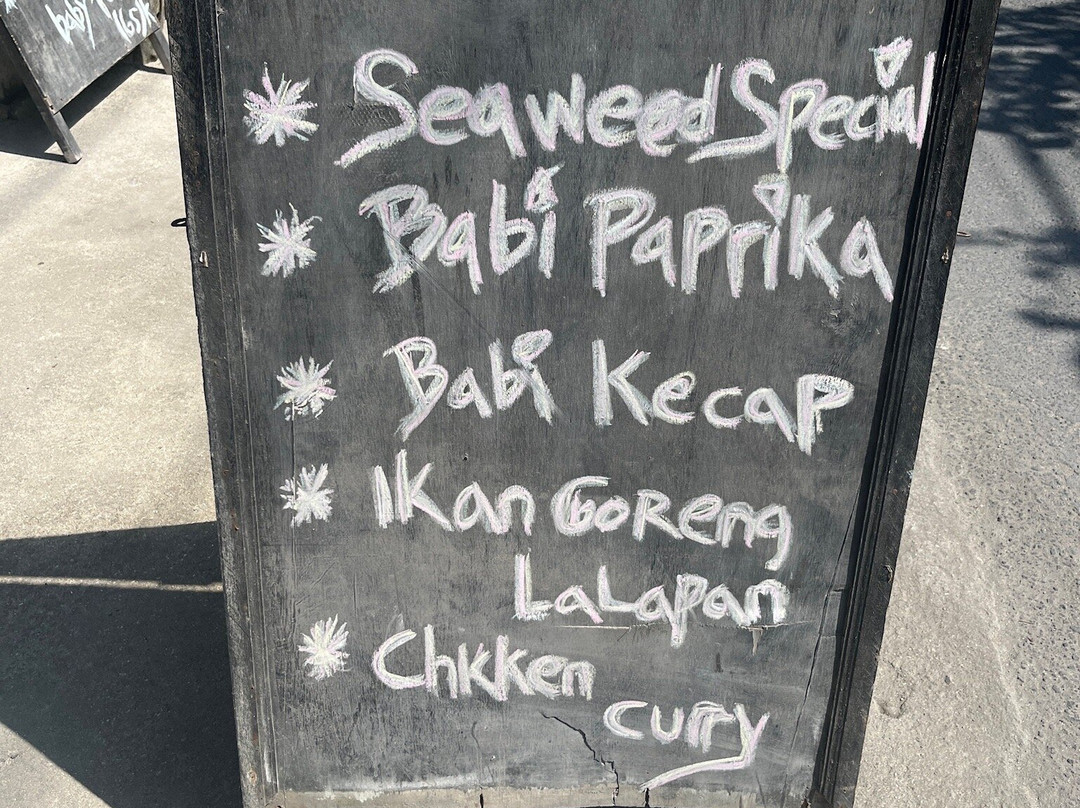 baby
(65)k
Seaweed Special
Babi Paprika
Babi Kecap
Ikan Goreng
Lalapan
Chkken
curry